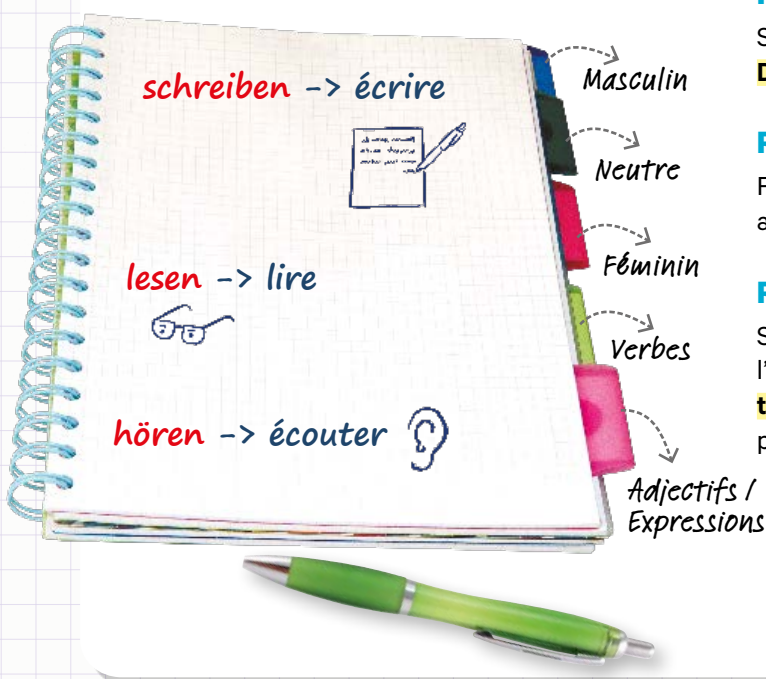 schreiben -> écrire
lesen -> lire
hören -> écouter
Masculin
Neutre
Féminin
Verbes
Adjectifs /
Expressions